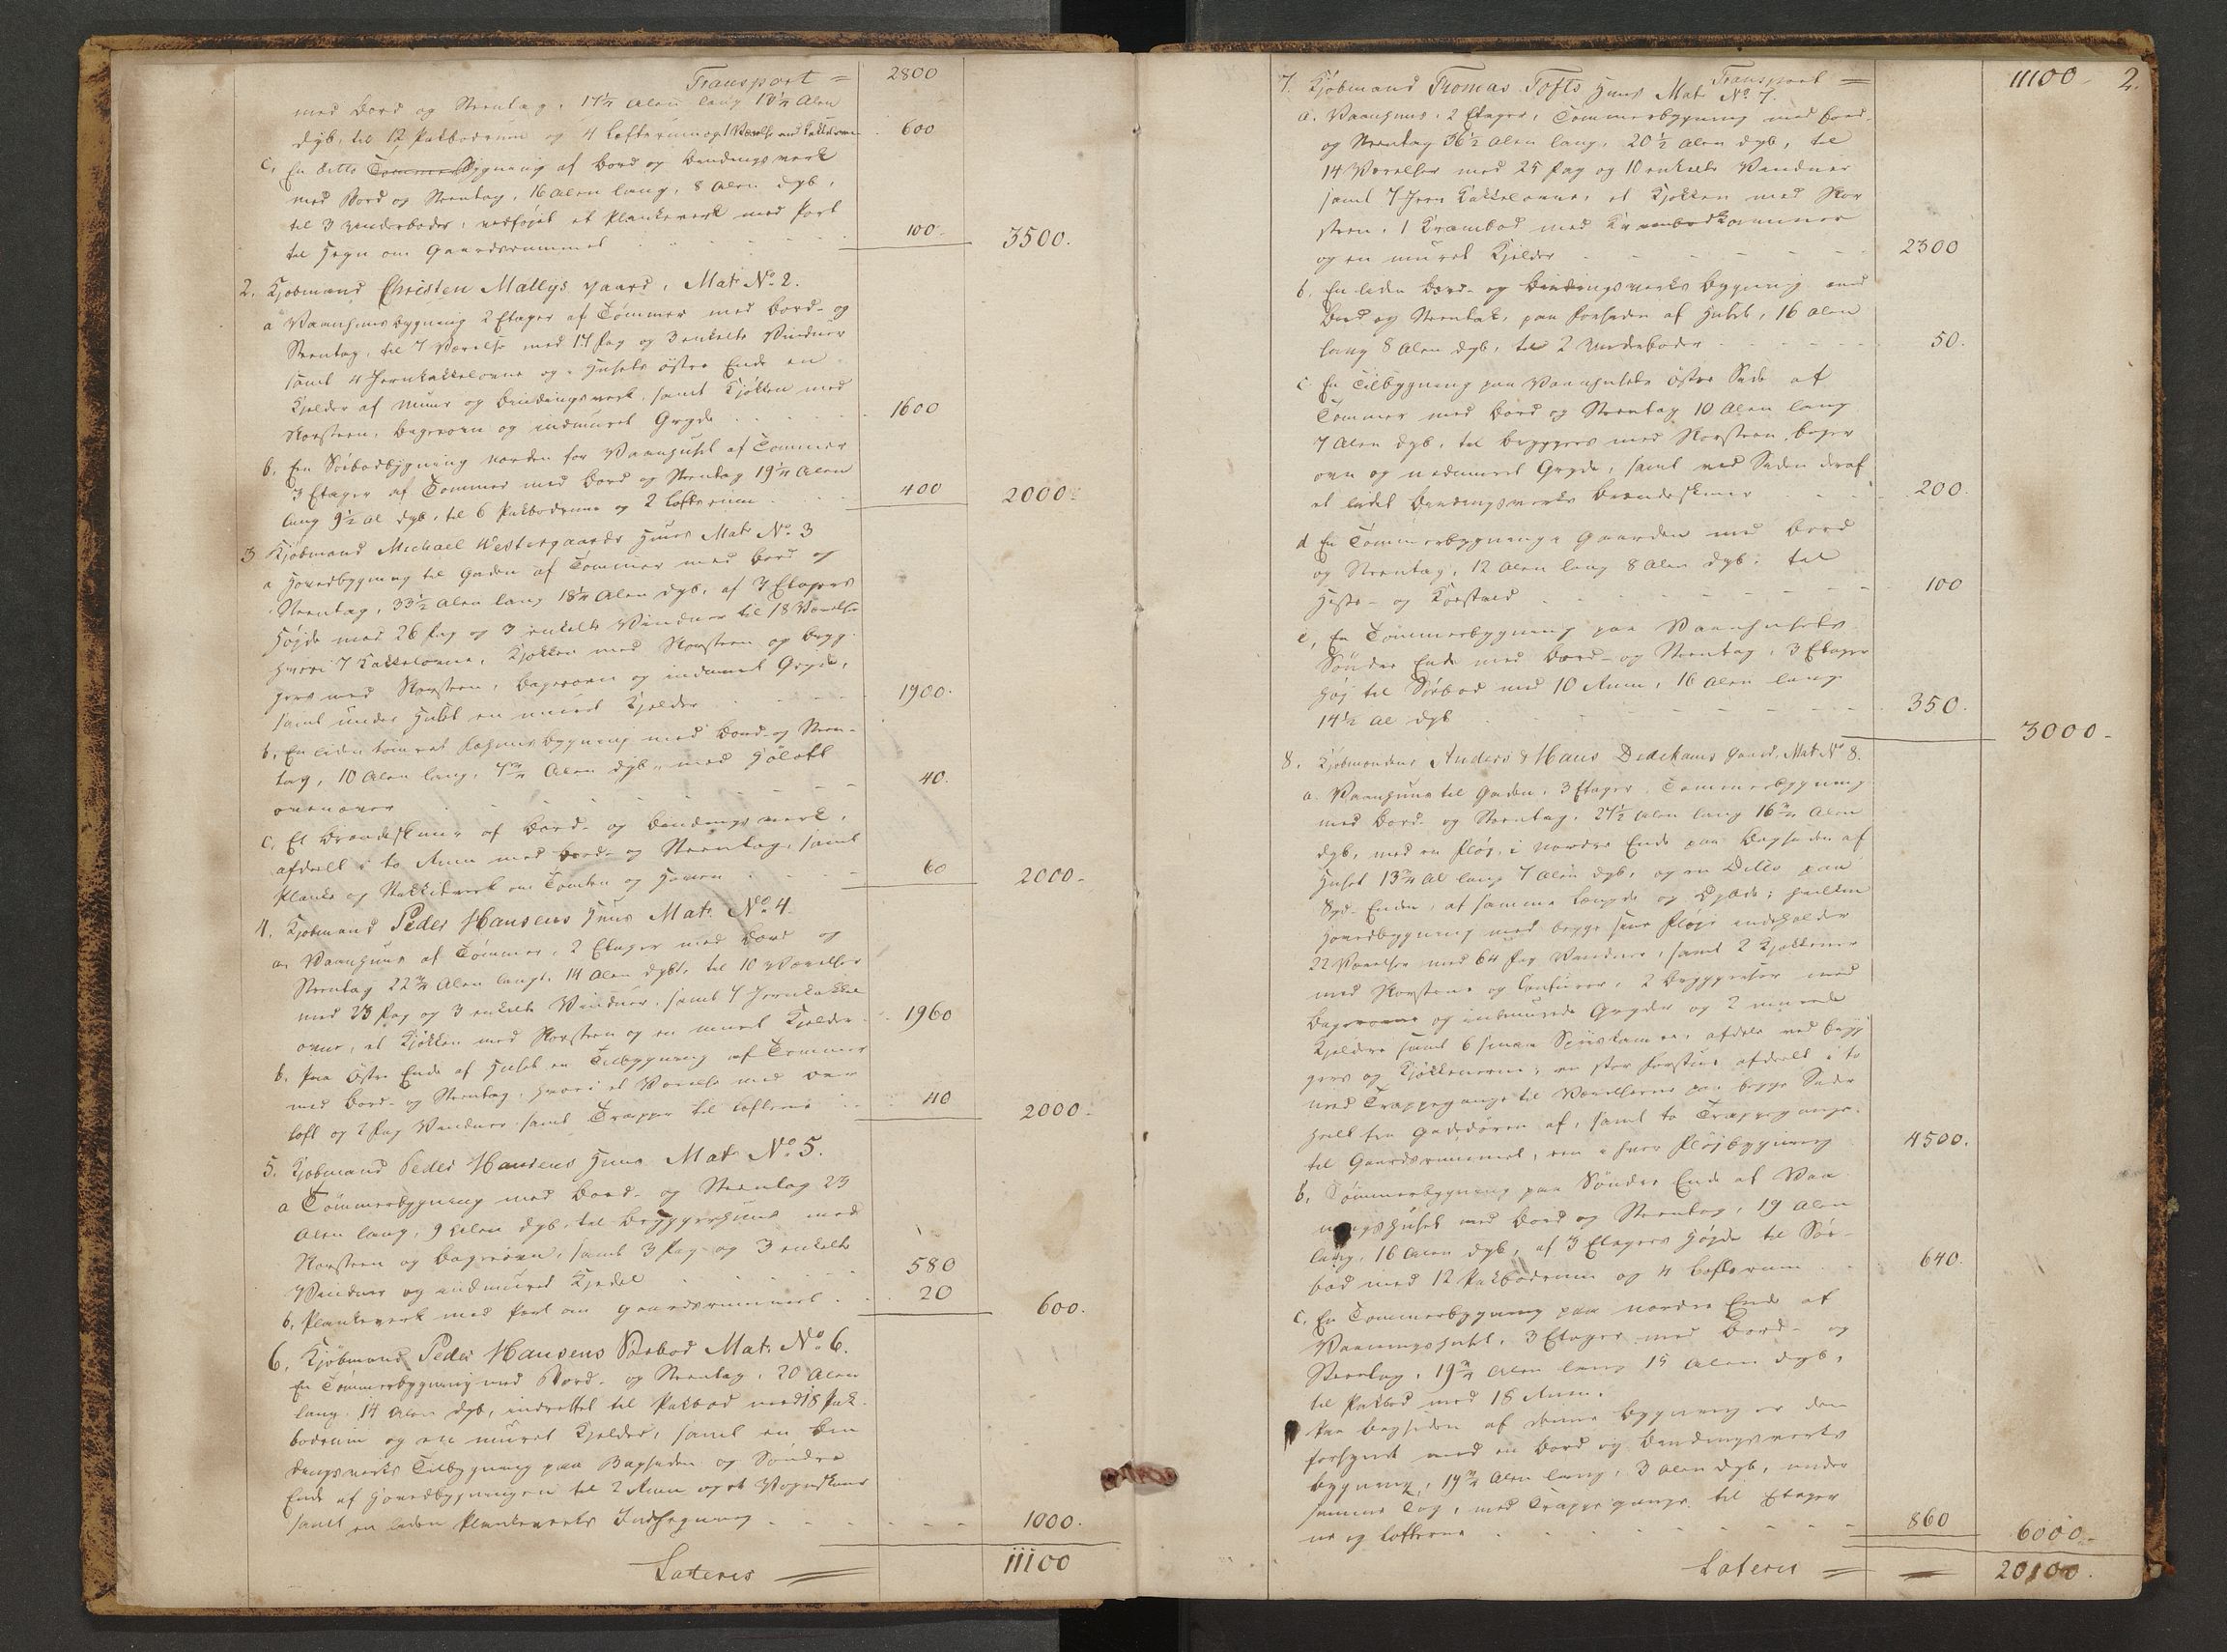 Transport = 2800
med Bord og Steentag, 17¼ Alen lang 10¼ Alen
dyb, til 12 Pakbodrum og 4 Loftsrum og 1 Værelse med Kakkelovn 600
c, En ditto Tømmerbygning af Bord og Bindingsværk
med Bord og Steentag, 16 Alen lang, 8 Alen dyb,
til 3 Vinderboder; vedføjet et Plankeværk med Port
til Hegn om Gaardsrummet 100. 3500.
2. Kjøbmand Christen Mallys Gaard, Mat: No. 2.
a Vaanhuusbygning 2 Etager af Tømmer med Bord- og
Steentag, til 7 Værelse med 14 Fag og 3 enkelte Vinduer
samt 4 Jernkakkelovne og i Husets østre Ende en
Kjelder af Muur og Bindingsverk, samt Kjøkken med
Skorsteen, Bagerovn og indmuret Gryde 1600
b. En Søebodbygning norden for Vaanhuset af Tømmer
3 Etager af Tømmer med Bord og Steentag 19¼ Alen
lang 9½ Al dyb, til 6 Pakbodrum og 2 Loftsrum 400 2000.
3 Kjøbmand Michael Westergaards Huus Mat: No. 3
a Hovedbygning til Gaden af Tømmer med Bord og
Steentag, 33½ Alen lang 18¼ Alen dyb, af 3 Etagers
Højde med 26 Fag og 3 enkelte Vinduer til 18 Værelser
hvori 7 Kakkelovne, Kjøkken med Skorsteen og Bryg-
gers med Skorsteen, Bagerovn og indmuret Gryde,
samt under Huset en muret Kjelder 1900.
b, En liden tømret Fæhuusbygning med Bord- og Steen-
tag, 10 Alen lang, 7¾ Alen dyb, med Høloft
ovenover 40.
c, Et Brændeskuur af Bord- og Bindingsværk,
afdeelt i to Rum med Bord- og Steentag, samt
Planke og Stakkitværk om Tomten og Haven 60 2000.
4. Kjøbmand Peder Hansens Huus Mat: No. 4.
a, Vaanhuus af Tømmer, 2 Etager med Bord og
Steentag 22¾ Alen langt, 14 Alen dybt, til 10 Værelser
med 23 Fag og 3 enkelte Vinduer, samt 7 Jernkakkel-
ovne, et Kjøkken med Skorsteen og en muret Kjelder 1960
b. Paa Østre Ende af Huset en Tilbygning af Tømmer
med Bord- og Steentag, hvori et Værelse med
Loft og 2 Fag Vinduer samt Trapper til Lofterne 40 2000.
5. Kjøbmand Peder Hansens Huus Mat: No. 5.
a Tømmerbygning med Bord- og Steentag 23
Alen lang, 9 Alen dyb, til Bryggerhuus med
Skorsteen og Bagerovn, samt 3 Fag og 3 enkelte
Vinduer og indmuret Kjedel 580
b. Plankeverk med Port om Gaardsrummet 20 600.
6. Kjøbmand Peder Hansens Søebod Mat: No. 6.
En Tømmerbygning med Bord- og Steentag, 20 Alen
lang, 14 Alen dyb, indrettet til Pakbod med 18 Pak-
bodrum og en muret Kjelder, samt en Bin-
dingsverks Tilbygning paa Bagsiden og Søndre
Ende af Hovedbygningen til 2 Rum og et Vognskuur
samt en liden Plankeverks Indhegning 1000.
Lateris = 11100
Transport = 11100 2.
7. Kjøbmand Thomas Tofts Huus Mat: No. 7.
a. Vaanhuus, 2 Etager, Tømmerbygning med Bord-
og Steentag 36½ Alen lang, 20½ Alen dyb, til
14 Værelser med 25 Fag og 10 enkelte Vinduer
samt 7 Jern Kakkelovne, et Kjøkken med Skor
steen, 1 Krambod med Krambodkammer
og en muret Kjelder 2300
b. En liden Bord- og Bindingsverks Bygning med
Bord og Steentak, paa Forsiden af Huset, 16 Alen
lang 8 Alen dyb, til 2 Vinderboder 50.
c En Tilbygning paa Vaanhusets østre Side af
Tømmer med Bord og Steentag 10 Alen lang
7 Alen dyb, til Bryggers med Skorsteen, Bager
ovn og indmuret Gryde, samt ved Siden deraf
et lidet Bindingsverks Brændeskuur 200.
d En Tømmerbygning i Gaarden med Bord
og Steentag, 12 Alen lang 8 Alen dyb, til
Heste- og Kostald 100
e, En Tømmerbygning paa Vaanhusets
Søndre Ende med Bord- og Steentag, 3 Etager
høj til Søebod med 10 Rum, 16 Alen lang
14½ Al dyb 350. 3000.
8. Kjøbmændene Anders & Hans Dedekams Gaard, Mat: No 8.
a. Vaanhuus til Gaden, 3 Etager Tømmerbygning
med Bord- og Steentag, 27½ Alen lang 16¾ Alen
dyb, med en Fløj i nordre Ende paa Bagsiden af
Huset 13¾ Al lang 7 Alen dyb, og en Ditto paa
Syd-Enden, af samme Længde og Dybde; hvilken
Hovedbygning med begge sine Fløje indeholder
22 Værelser med 64 Fag Vinduer, samt 2 Kjøkkener
med Skorstene og Comfurer, 2 Bryggerser med
Bagerovne og indmurede Gryder og 2 murede
Kjeldere samt 6 smaa Spiiskamre, afdeelt ved Bryg
gers og Kjøkkenerne; en stor Forstue afdeelt i to
med Trappegange til Værelserne paa begge Sider
heelt fra Gadedøren af, samt to Trappegange
til Gaardsrummet, een i hver Fløjbygning 4500.
b, Tømmerbygning paa Søndre Ende af Vaa-
ningshuset med Bord og Steentag, 19 Alen
lang, 16 Alen dyb, af 3 Etagers Højde til Søe-
bod med 12 Pakbodrum og 4 Loftsrum 640.
c, En Tømmerbygning paa nordre Ende af
Vaaningshuset, 3 Etager med Bord- og
Steentag, 19¾ Alen lang 15 Alen dyb,
til Pakbod med 18 Rum.
Paa Bagsiden af denne Bygning er den
forsynet med en Bord og Bindingsverks
bygning, 19¾ Alen lang, 3 Alen dyb, under
samme Tag, med Trappegange til Etager
ne og Lofterne 860 6000.
Lateris = 20100.